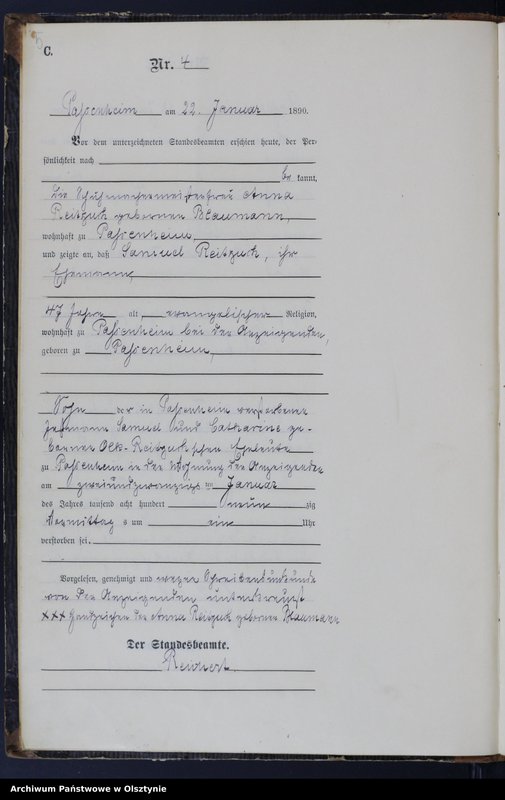 C.
Nr. 4
Passenheim am 22. Januar 1890.
Vor dem unterzeichneten Standesbeamten erschien heute, der Per-
sönlichkeit nach
be kannt,
die Schuhmachermeisterfrau Anna
Reitzuck geborenen Blaumann,
wohnhaft zu Passenheim,
und zeigte an, daß Samuel Reitzuck, ihr
Ehemann,
47 Jahre alt, evangelischer Religion,
wohnhaft zu Passenheim bei der Anzeigenden,
geboren zu Passenheim,
Sohn der in Passenheim verstorbenen
Samuel und Catharine ge-
borenen Olk- Reitzuck'schen Eheleute
zu Passenheim in der Wohnung der Anzeigenden
am zweiundzwanzigsten Januar
des Jahres tausend acht hundert neun zig
Vormittag s um ein Uhr
verstorben sei.
Vorgelesen, genehmigt und wegen Schreibensunkunde
von der Anzeigenden unterkreuzt
+++ Handzeichen der Anna Reitzuck geborenen Blaumann
Der Standesbeamte.
Archiwum Państwowe w Olsztynie